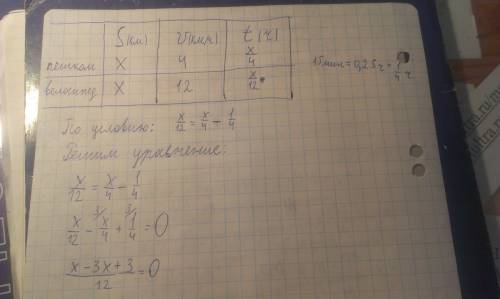 S(км) V(км/ч) t(ч)
пешком X 4 x/4
велосипед X 12 x/12
15мин=0,25ч=1/4 ч
По условию: x/12 = x/4 - 1/4
Решим уравнение:
x/12 = x/4 - 1/4
x/12 - ³/x/4 + ³/1/4 = 0
x-3x+3/12 = 0